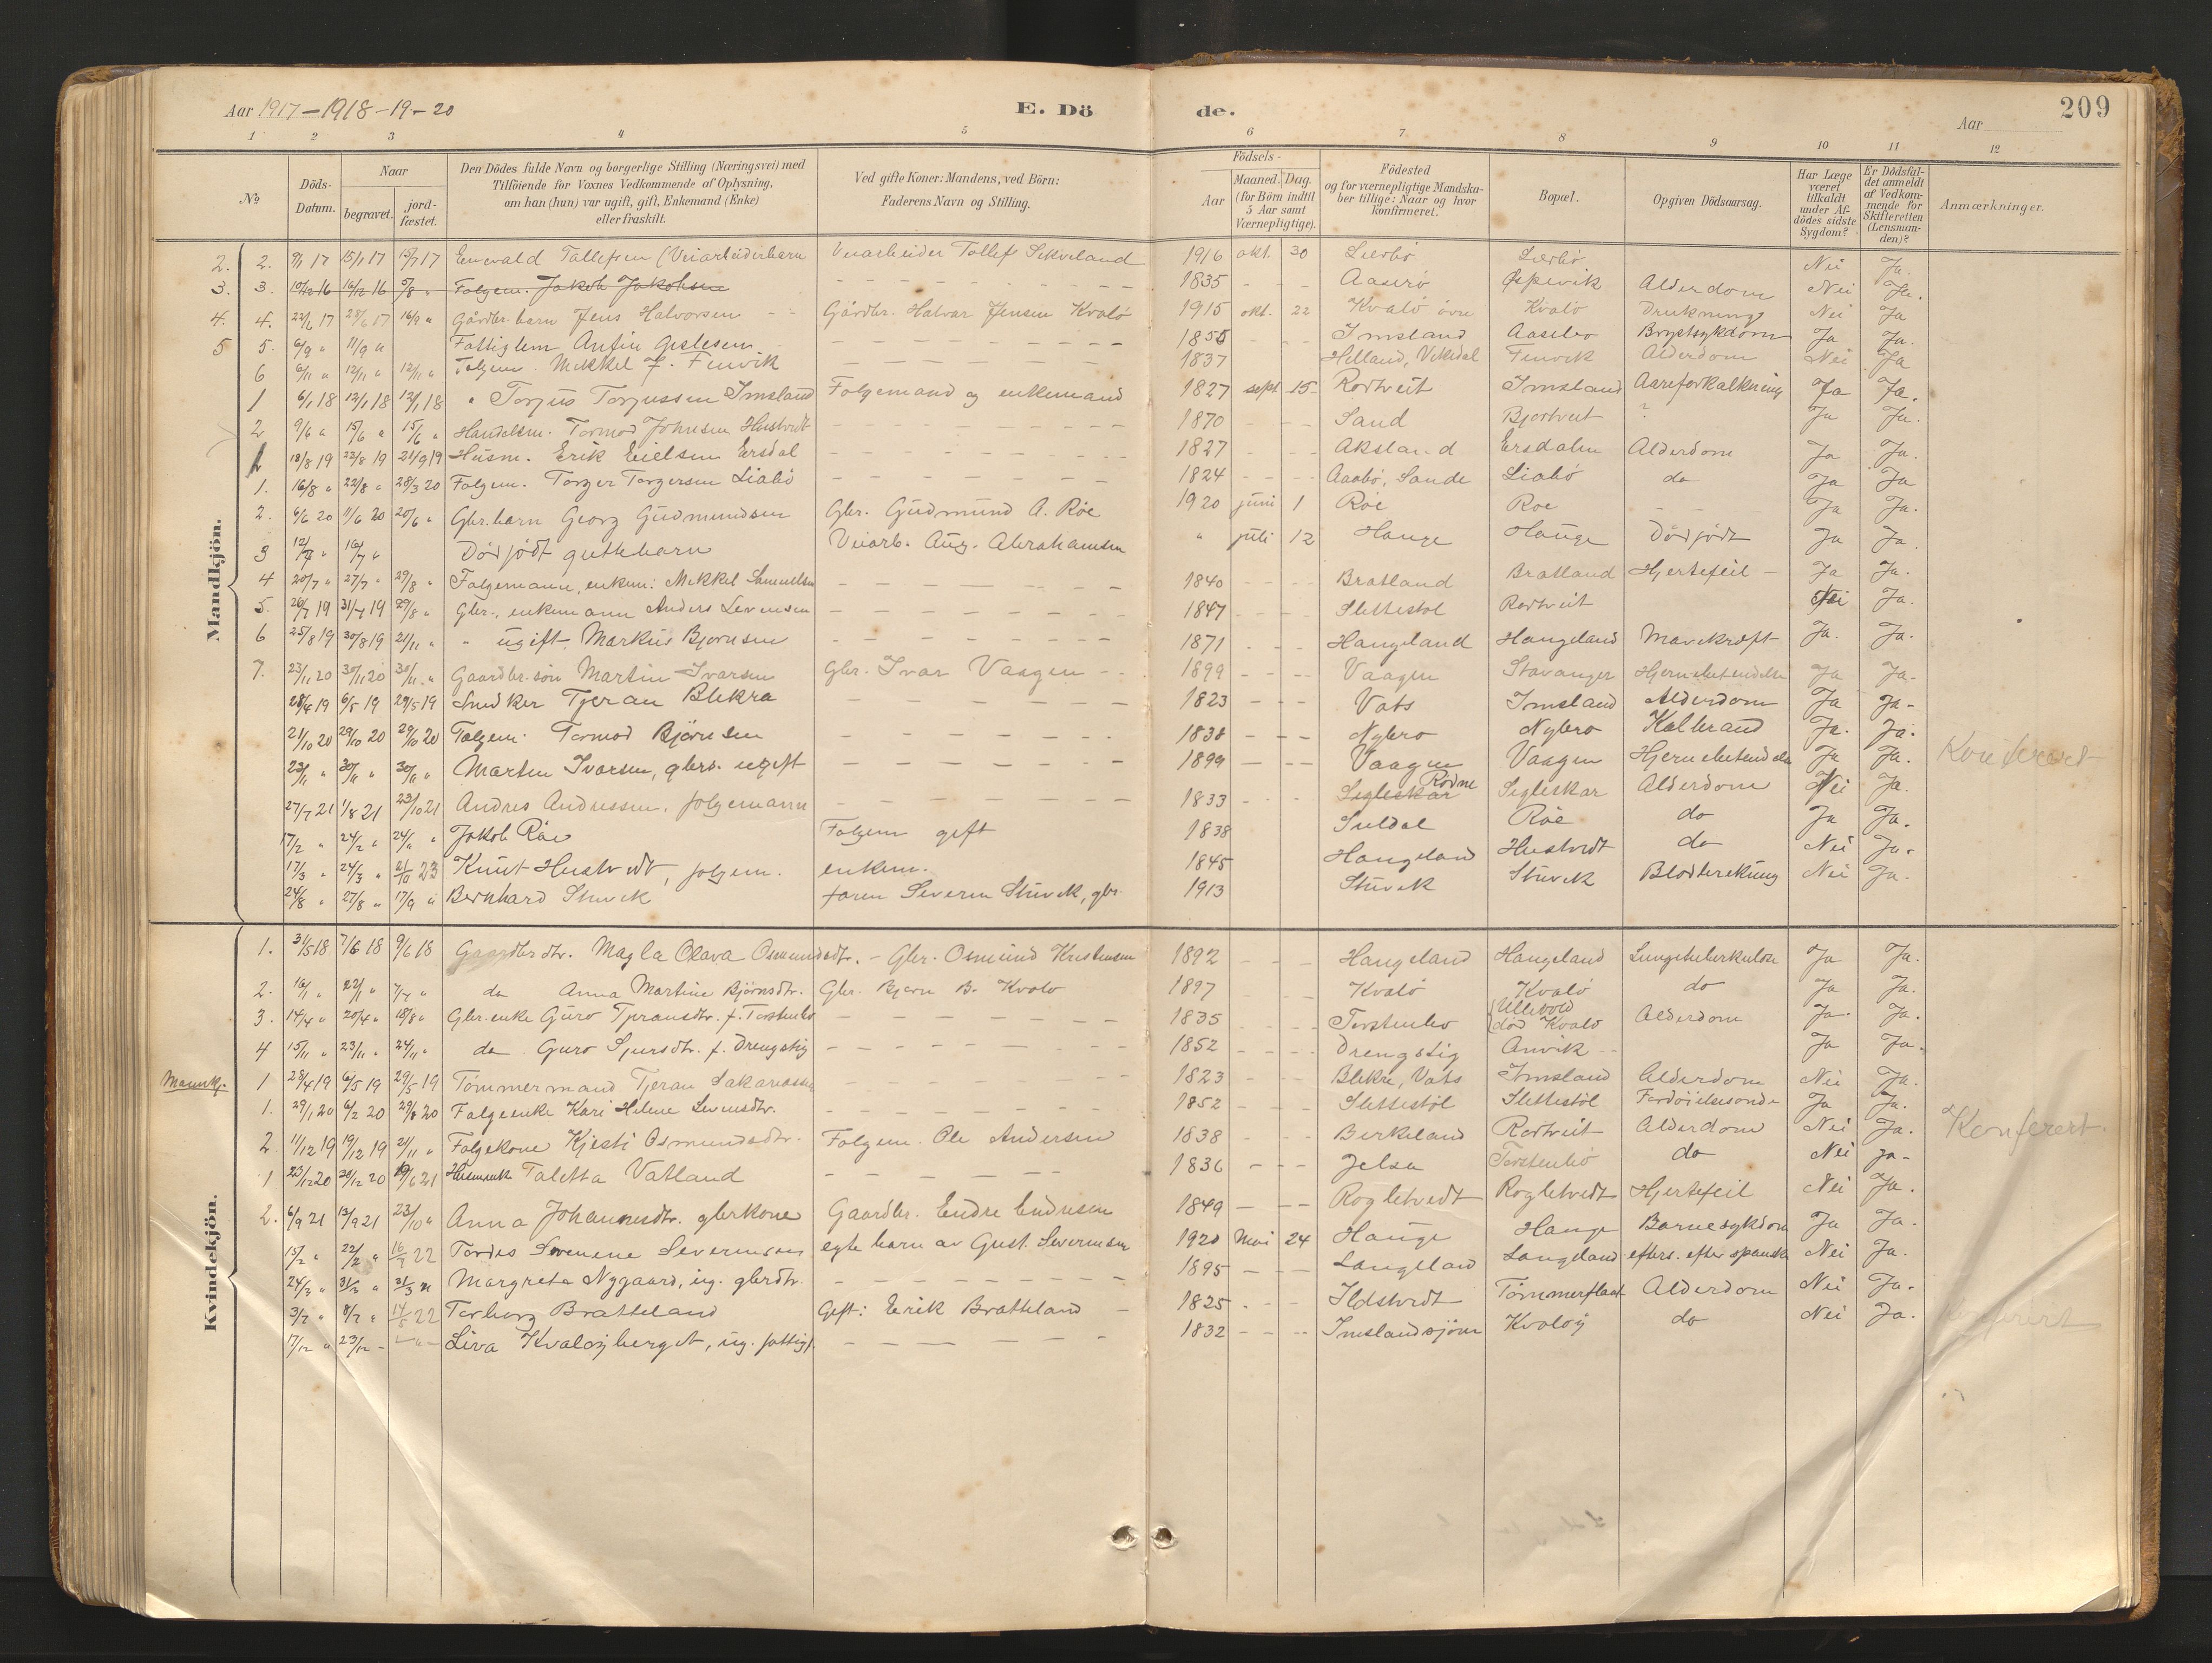 Aar 1917-1918-19-20
E. Dö de.
Aar
209
1 2 3 4 5 6 7 8 9 10 11 12
No
Döds-Datum.
Naar
begravet.
jord-fæstet.
Den Dödes fulde Navn og borgerlige Stilling (Næringsvei) med
Tilföiende for Voxnes Vedkommende af Oplysning,
om han (hun) var ugift, gift, Enkemand (Enke)
eller fraskilt.
Ved gifte Koner: Mandens, ved Börn:
Faderens Navn og Stilling.
Födsels-
Aar
Maaned. Dag.
(for Börn indtil
5 Aar samt
Værnepligtige).
Födested
og for værnepligtige Mandska-
ber tillige: Naar og hvor
konfirmeret.
Bopæl.
Opgiven Dödsaarsag.
Har Læge
været
tilkaldt
under Af-
dödes sidste
Sygdom?
Er Dödsfal-
det anmeldt
af Vedkom-
mende for
Skifteretten
(Lensman-
den)?
Anmærkninger.
Mandkjön.
2. 2. 9/1 17 15/1 17 15/7 17 Tallefsen (Veiarbeiderbarn Veiarbeider Tollef Sekveland 1916 okt. 30 Lierbö Lierbö Nei Ja.
3. 3. 10/12 16 16/12 16 5/8 " Folgem. Jakob Jakobsen 1835 Aaserö Espevik Alderdom Nei Ja.
4. 4. 22/6 17 28/6 17 16/9 " Gårdbr. barn Jens Halvorsen Gårdbr. Halvar Jensen Kvalö 1915 okt. 22 Kvalö övre Kvalö Drukning Nei Ja
5 5. 6/9 " 11/9 " Fattiglem Anfin Gislesen 1855 Imsland Aasebo Brystsykdom Ja Ja.
6 6/11 " 12/11 " 12/11 " Folgem. Mikkel J. Finvik 1837 Helland, Vikedal Finvik Alderdom Nei Ja
1 6/1 18 12/1 18 12/1 18 " Torjus Torjussen Imsland Folgemand og enkemand 1827 sept 15 Rortveit Imsland Aareforkalkning Ja Ja.
2 9/6 " 15/6 " 15/6 " Handelsm. Tormod Johnsen Hustvedt 1870 Sand Bjortveit ? Ja Ja.
1 18/8 19 23/8 19 21/9 19 Husm. Erik Eielsen Ersdal 1827 Aksland Ersdalen Alderdom Ja Ja.
1. 16/8 " 22/8 " 28/3 20 Folgem. Torger Torgersen Liabö 1824 Aaabö, Sande Liabö do Ja Ja
2. 6/6 20 11/6 20 20/6 " Gbr. barn Georg Gudmundsen Gbr. Gudmund A. Röe 1920 juni 1 Röe Roe Ja Ja.
3 12/7 " 16/7 " Dödfödt guttebarn Veiarb. Aug. Abrahamsen " juli 12 Hauge Hauge Dödfödt Ja Ja.
4 20/7 " 27/7 " 29/8 " Folgemann, enkem: Mikkel Samuelsen 1840 Bratland Bratland Hjertefeil Ja Ja.
5. 26/7 19 31/7 19 29/8 " Gbr., enkemann Anders Sevensen 1847 Slettestol Rortveit Nei Ja.
6 25/8 19 30/8 19 21/11 " " ugift Markus Bjornsen 1871 Hangeland Hangeland Mavekræft Ja. Ja.
7. 23/11 20 30/11 20 30/11 " Gaardbr. sön Martin Ivarsen Gbr. Ivar Vaagen 1899 Vaagen Stavanger Hjernebetendelse Ja Ja.
28/4 19 6/5 19 29/5 19 Snedker Tjeran Blikra 1823 Vats Imsland Alderdom Ja Ja.
21/10 20 29/10 20 29/10 20 Folgem. Tormod Björnsen 1838 Nybro Nybro Kolbrand Ja. Ja.
23/11 " 30/11 " 30/11 " Martin Ivarsen, gbrs. ugift 1899 Vaagen Vaagen Hjernebetendelse Ja Ja. Konferert
27/7 21 1/8 21 23/10 21 Andres Andressen, folgemann 1833 Segleskar Rodne Segleskar Alderdom Nei Ja.
17/2 " 24/2 " 24/4 " Jakob Röe Folgem gift 1838 Suldal Röe do Ja Ja.
17/3 " 24/3 " 21/10 23 Knut Hustvedt, folgem. enkem. 1845 Hangeland Hustvedt do Nei Ja.
24/8 " 27/8 " 17/9 " Bernhard Stuvik faren Severin Stuvik, gbr. 1913 Stuvik Stuvik Blodtrekning Nei Ja.
Kvindekjön.
1. 31/5 18 7/6 18 9/6 18 Gaardbr dtr. Magla Olava Osmundsdtr. - Gbr. Osmund Kristensen 1892 Hangeland Hangeland Lungetuberkulose Ja Ja.
2. 16/1 " 22/1 " 7/4 " do Anna Martine Björnsdtr. Gbr. Bjorn B. Kvalo 1897 Kvalö Kvalö do Ja Ja.
3. 14/4 " 20/4 " 18/8 " Gbr. enke Guro Tjeransdtr. f. Torstenbö 1835 Torstenbo Ullevold död Kvalö Alderdom Ja. Ja.
4 15/11 " 23/11 " 24/11 " do Guro Sjursdtr. f. Drengstig 1852 Drengstig Anvik Ja Ja.
Mannkj. 1 28/4 19 6/5 19 29/5 19 Tömmermand Tjeran Sakariassen 1823 Blikre, Vats Imsland Alderdom Nei Ja.
1. 29/1 20 6/2 20 29/8 20 Folgeenke Kari Helene Sevensdtr. 1852 Slettestöl Slettestöl Fordöielsesonde Ja Ja.
2 11/12 19 19/12 19 21/11 " Folgekone Kjesti Osmundsdtr. Folgem. Ole Andersen 1838 Birkeland Rortveit Alderdom Nei Ja. Konferert.
1 23/12 20 30/12 20 19/6 21 Husmenk Taletta Vatland 1836 Jelsa Torstenbö do Nei Ja.
2. 6/9 21 13/9 21 23/10 " Anna Johannesdtr. gbrkone Gaardbr. Endre Endresen 1849 Rogletvedt Rogletvedt Hjertefeil Nei Ja.
15/2 " 22/2 " 22 Tordis Severine Severinsen egte barn av Gust. Severinsen 1920 Mai 24 Hauge Hauge Barnesykdom Ja Ja.
24/3 " 31/3 " 31/3 " Margreta Nygaard, ug. gbrdtr. 1895 Langeland Langeland efters. efter spanske Nei Ja.
3/7 " 8/7 " 22 Torborg Bratteland Gift: Erik Bratteland 1825 Ildstvedt Tömmerflaat Alderdom Nei Ja.
17/12 " 23/12 Liva Kvaloyberget, ug. fattigl. 1832 Imslandsjöen Kvaloy do Nei Ja.